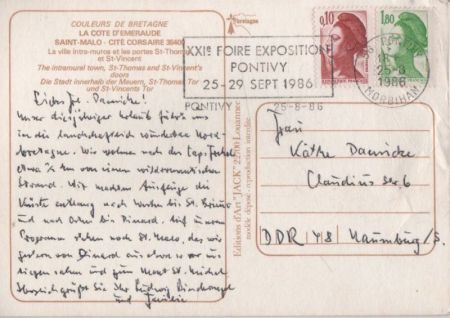 COULEURS DE BRETAGNE
LA COTE D'EMERAUDE
SAINT-MALO - CITÉ CORSAIRE 35400
La ville intra-muros et les portes St-Thomas
et St-Vincent
The intramural town, St-Thomas and St-Vincent's
doors
Die Stadt innerhalb der Mauern, St-Thomas Tor
und St-Vincents Tor
Bretagne
Liebe Fr.
Unser diesjähriger Urlaub führt uns
in die landschaftlich wunderbare Nord-
bretagne. Wir wohnen nach
etwa km von einem wildromantischen
Strand. Wir machen Ausflüge die
Küste entlang nach Westen bis St. Brieuc
und nach Osten bis Dinard. Auf unserem
Programm stehen noch St. Malo, das wir
gestern von Dinard aus vor uns
liegen sahen und zum Mont St. Michel.
Herzlich grüßt Sie Ihr Ludwig
und Familie
Editions d'Art "JACK" 22700 Louannec
modèle déposé - reproduction interdite
XXIe FOIRE EXPOSITION
PONTIVY
25-29 SEPT 1986
PONTIVY
25-8-86
0,10
1,80
18
25-8
1986
MORBIHAN
Frau
Käthe
Claudiusstr. 6
DDR 48 Naumburg/S.